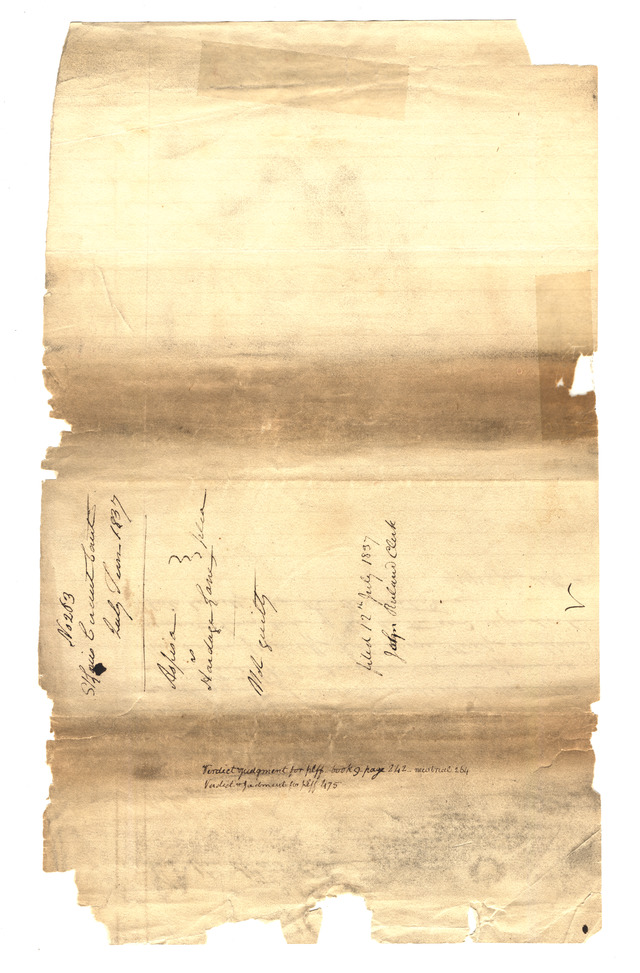 No 283
St Louis Circuit Court
July Term 1837
Aspisa
vs } plea
Hardage Lane
Not guilty
filed 12th July 1837
John Ruland Clerk
Verdict & judgment for plff book 9 page 242 new trial 264
Verdict & judgment for plff 475